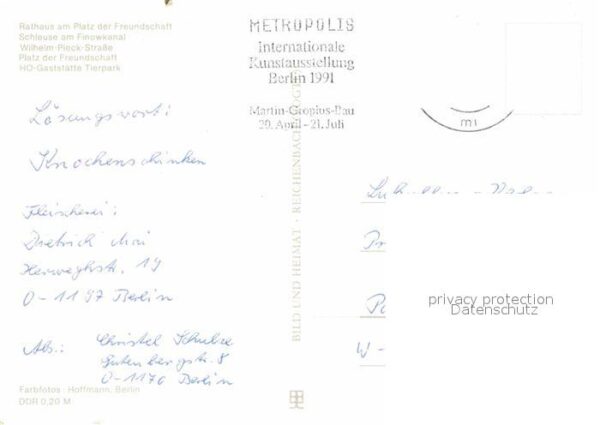 Rathaus am Platz der Freundschaft
Schleuse am Finowkanal
Wilhelm-Pieck-Straße
Platz der Freundschaft
HO-Gaststätte Tierpark
METROPOLIS
Internationale
Kunstausstellung
Berlin 1991
Martin-Gropius-Bau
20. April - 21. Juli
mi
Lösungswort:
Knochenschinken
Fleischerei:
Dietrich Mai
Herweghstr. 19
O-1197 Berlin
Abs.: Christel Schulze
Gutenbergstr. 8
O-1170 Berlin
Farbfotos · Hoffmann, Berlin
DDR 0,20 M
BILD UND HEIMAT · REICHENBACH
W-
privacy protection
Datenschutz